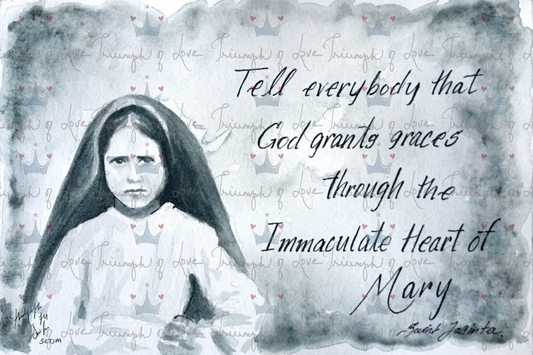 Tell everybody that
God grants graces
through the
Immaculate Heart of
Mary
Saint Jacinta
Triumph of Love Triumph of Love Triumph of Love